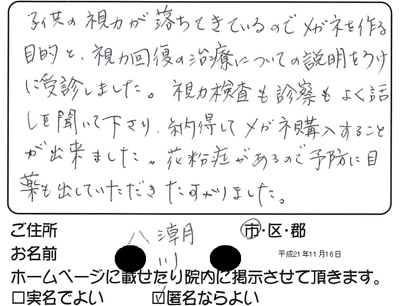 子供の視力が落ちてきているのでメガネを作る
目的と、視力回復の治療についての説明をうけ
に受診しました。視力検査も診察もよく話
しを聞いて下さり、納得してメガネ購入すること
が出来ました。花粉症があるので予防に目
薬も出していただきたすかりました。
ご住所 八潮 市・区・郡
お名前 川 平成21年11月16日
ホームページに載せたり院内に掲示させて頂きます。
□実名でよい ☑匿名ならよい